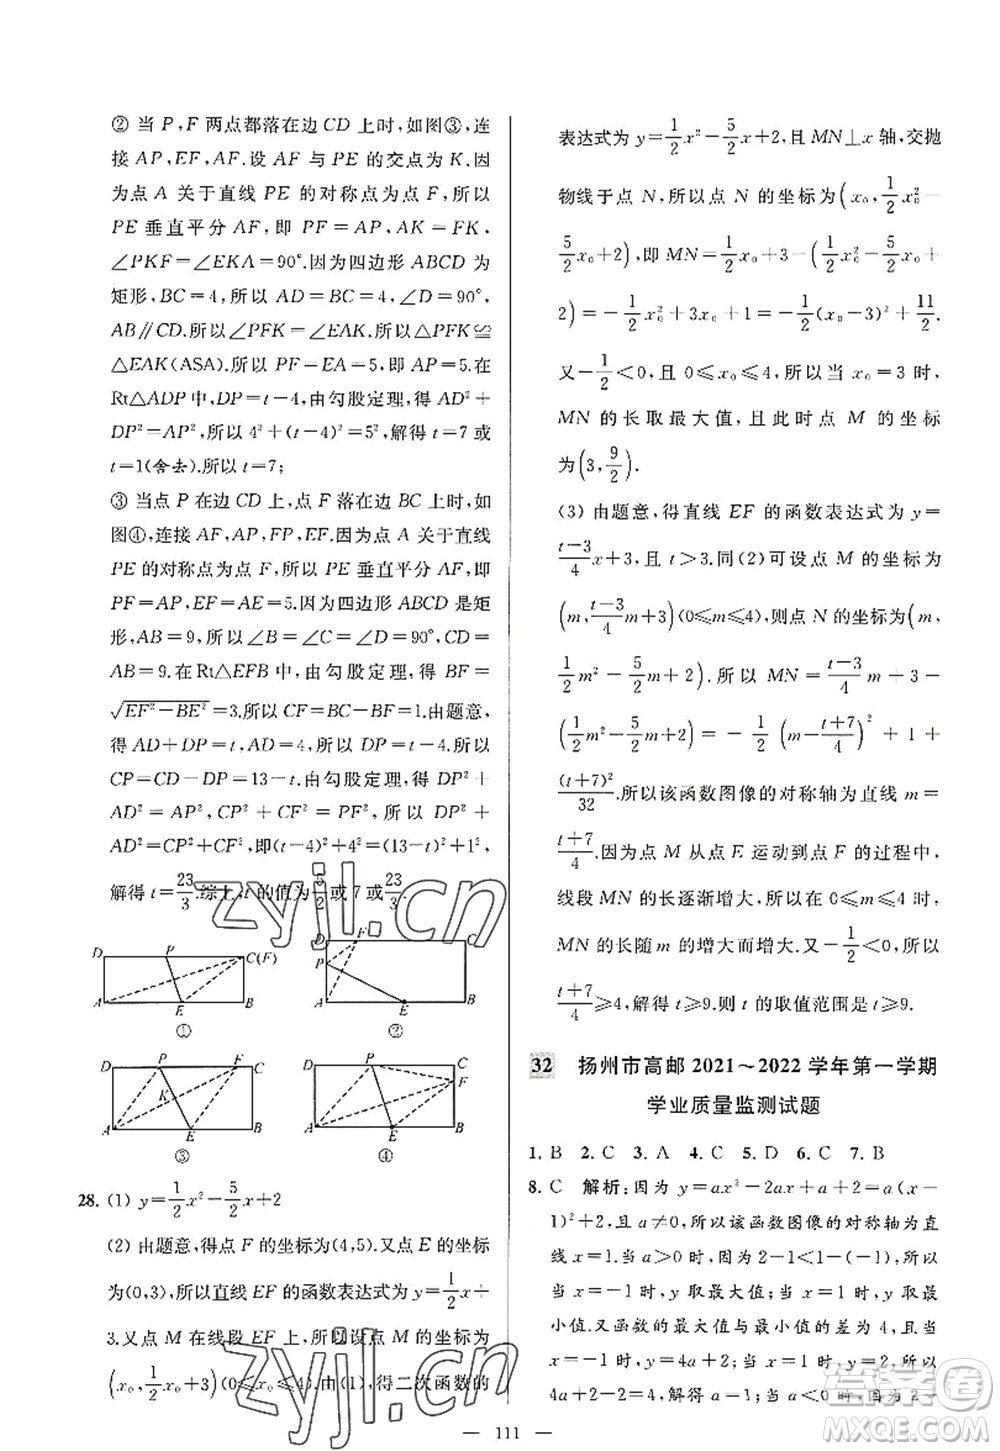 ② 当 P,F 两点都落在边 CD 上时,如图③,连
接 AP,EF,AF. 设 AF 与 PE 的交点为 K. 因
为点 A 关于直线 PE 的对称点为点 F,所以
PE 垂直平分 AF,即 PF=PA,AK=FK,
∠PKF=∠EKA=90°. 因为四边形 ABCD 为
矩形,BC=4,所以 AD=BC=4,∠D=90°,
AB∥CD. 所以∠PFK=∠EAK. 所以△PFK≌
△EAK(ASA). 所以 PF=EA=5,即 AP=5. 在
Rt△ADP 中,DP=t-4,由勾股定理,得 AD²+
DP²=AP²,所以 4²+(t-4)²=5²,解得 t=7 或
t=1(舍去). 所以 t=7;
③ 当点 P 在边 CD 上,点 F 落在边 BC 上时,如
图④,连接 AP,AF,FP,EF. 因为点 A 关于直线
PE 的对称点为点 F,所以 PE 垂直平分 AF,即
PF=AP,EF=AE=5. 因为四边形 ABCD 是矩
形,AB=9,所以∠B=∠C=∠D=90°,CD=
AB=9. 在 Rt△EFB 中,由勾股定理,得 BF=
√(EF²-BE²)=3. 所以 CF=BC-BF=1. 由题意,
得 AD+DP=t,AD=4,所以 DP=t-4. 所以
CP=CD-DP=13-t. 由勾股定理,得 DP²+
AD²=AP²,CP²+CF²=PF²,所以 DP²+AD²=
CP²+CF²,即(t-4)²+4²=(13-t)²+1²,
解得 t=23/3. 综上,t 的值为 5/2 或 7 或 23/3.
D P C(F) A E B ①
F P A E B ②
D P F C K A E B ③
D P C F A E B ④
28. (1) y=1/2x²-5/2x+2
(2) 由题意,得点 F 的坐标为(4,5). 又点 E 的坐标
为(0,3),所以直线 EF 的函数表达式为 y=1/2x+
3. 又点 M 在线段 EF 上,所以设点 M 的坐标为
(x₀,1/2x₀+3)(0≤x₀≤4). 由(1),得二次函数的
表达式为 y=1/2x²-5/2x+2,且 MN⊥x 轴,交抛
物线于点 N,所以点 N 的坐标为(x₀,1/2x₀²-
5/2x₀+2),即 MN=1/2x₀+3-(1/2x₀²-5/2x₀+
2)=-1/2x₀²+3x₀+1=-1/2(x₀-3)²+11/2.
又-1/2<0,且 0≤x₀≤4,所以当 x₀=3 时,
MN 的长取最大值,且此时点 M 的坐标
为(3,9/2).
(3) 由题意,得直线 EF 的函数表达式为 y=
(t-3)/4x+3,且 t>3. 同(2)可设点 M 的坐标为
(m,(t-3)/4m+3)(0≤m≤4),则点 N 的坐标为(m,
1/2m²-5/2m+2). 所以 MN=(t-3)/4m+3-
(1/2m²-5/2m+2)=-1/2(m-(t+7)/4)²+1+
(t+7)²/32. 所以该函数图像的对称轴为直线 m=
(t+7)/4. 因为点 M 从点 E 运动到点 F 的过程中,
MN 的长逐渐增大,所以当 0≤m≤4 时,
MN 的长随 m 的增大而增大. 又-1/2<0,所以
(t+7)/4≥4,解得 t≥9. 则 t 的取值范围是 t≥9.
32 扬州市高邮 2021～2022 学年第一学期
学业质量监测试题
1. B 2. C 3. A 4. C 5. D 6. C 7. B
8. C 解析:因为 y=ax²-2ax+a+2=a(x-
1)²+2,且 a≠0,所以该函数图像的对称轴为直
线 x=1. 当 a>0 时,因为 2-1<1-(-1),所以
当 x=-1 时,y 取最大值;当 x=1 时,y 取最
小值. 又函数的最大值与最小值的差为 4,当
x=-1 时,y=4a+2;当 x=1 时,y=2,所以
4a+2-2=4,解得 a=1;当 a<0 时,因为 2-
— 111 —
zyjl.cn
zyjl.cn
答案圈
MXQE.COM